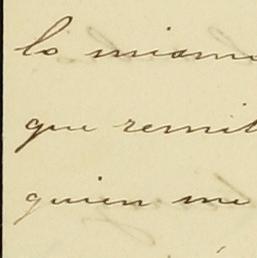 lo mismo
que remit
quien me